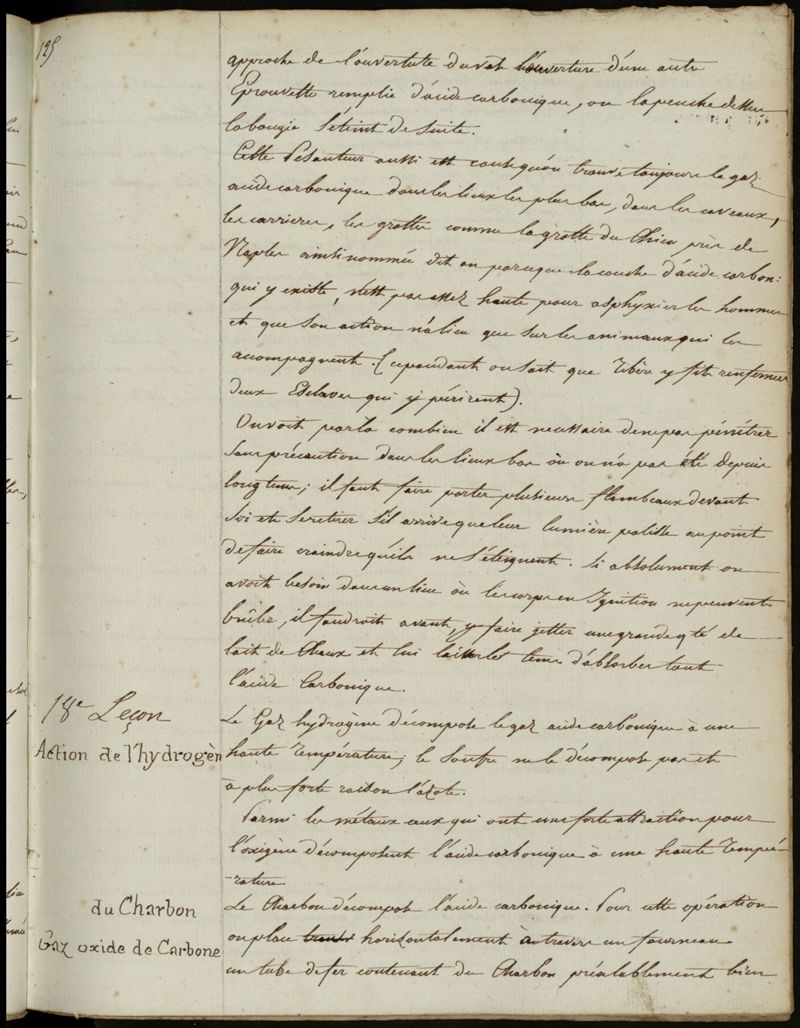 125
approche de l'ouverture du vase l'ouverture d'une autre
Eprouvette remplie d'acide carbonique, on la penche dessus
la bougie s'éteint de suite.
Cette Pesanteur aussi est cause qu'on trouve toujours le gaz
acide carbonique dans les lieux les plus bas, dans les caveaux,
les carrieres, les grottes comme la grotte du Chien près de
Naples ainsi nommée dit on parceque la couche d'acide carbon:
qui y existe, n'est pas assez haute pour asphyxier les hommes
et que son action n'a lieu que sur les animaux qui les
acompagnent. (cependant on sait que Tibère y fit renfermer
deux Esclaves qui y périrent).
On voit par là combien il est necessaire de ne pas pénétrer
sans précaution dans les lieux bas où on n'a pas été depuis
longtems; il faut faire porter plusieurs flambeaux devant
soi et se retirer s'il arrive que leur lumière palisse au point
de faire craindre qu'ils ne s'éteignent. Si absolument on
avoit besoin dans un lieu où les corps en Ignition ne peuvent
brûler, il faudroit avant, y faire jetter une grande qté de
lait de Chaux et lui laisser le tems d'absorber tout
l'acide Carbonique.
18e Leçon
Action de l'hydrogèn
Le Gaz hydrogène décompose le gaz acide carbonique à une
haute Température; le Soufre ne le décompose pas et
à plus forte raison l'azote.
Parmi les métaux ceux qui ont une forte attraction pour
l'oxigène décomposent l'acide carbonique à une haute Tempé-
-rature
du Charbon
Gaz oxide de Carbone
Le Charbon décompose l'acide carbonique. Pour cette opération
on place horizontalement à travers un fourneau
un tube de fer contenant du Charbon préalablement bien